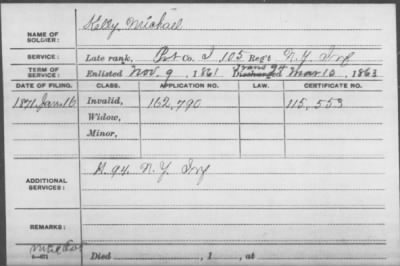 Kelly, Michael
NAME OF SOLDIER:
SERVICE: Late rank, Pvt Co. I 105 Reg't N.Y. Inf
TERM OF SERVICE: Enlisted Nov. 9, 1861 Discharged Mar 10, 1863
DATE OF FILING. CLASS. APPLICATION NO. LAW. CERTIFICATE NO.
1871 Jan. 16 Invalid, 162,790 115,553
Widow,
Minor,
ADDITIONAL SERVICES: K. 94. N.Y. Inf
REMARKS:
Died , 1 , at